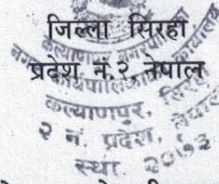 जिल्ला सिरहा
प्रदेश नं.२, नेपाल
कल्याणपुर, सिरहा
२ नं. प्रदेश, नेपाल
स्था. २०७३